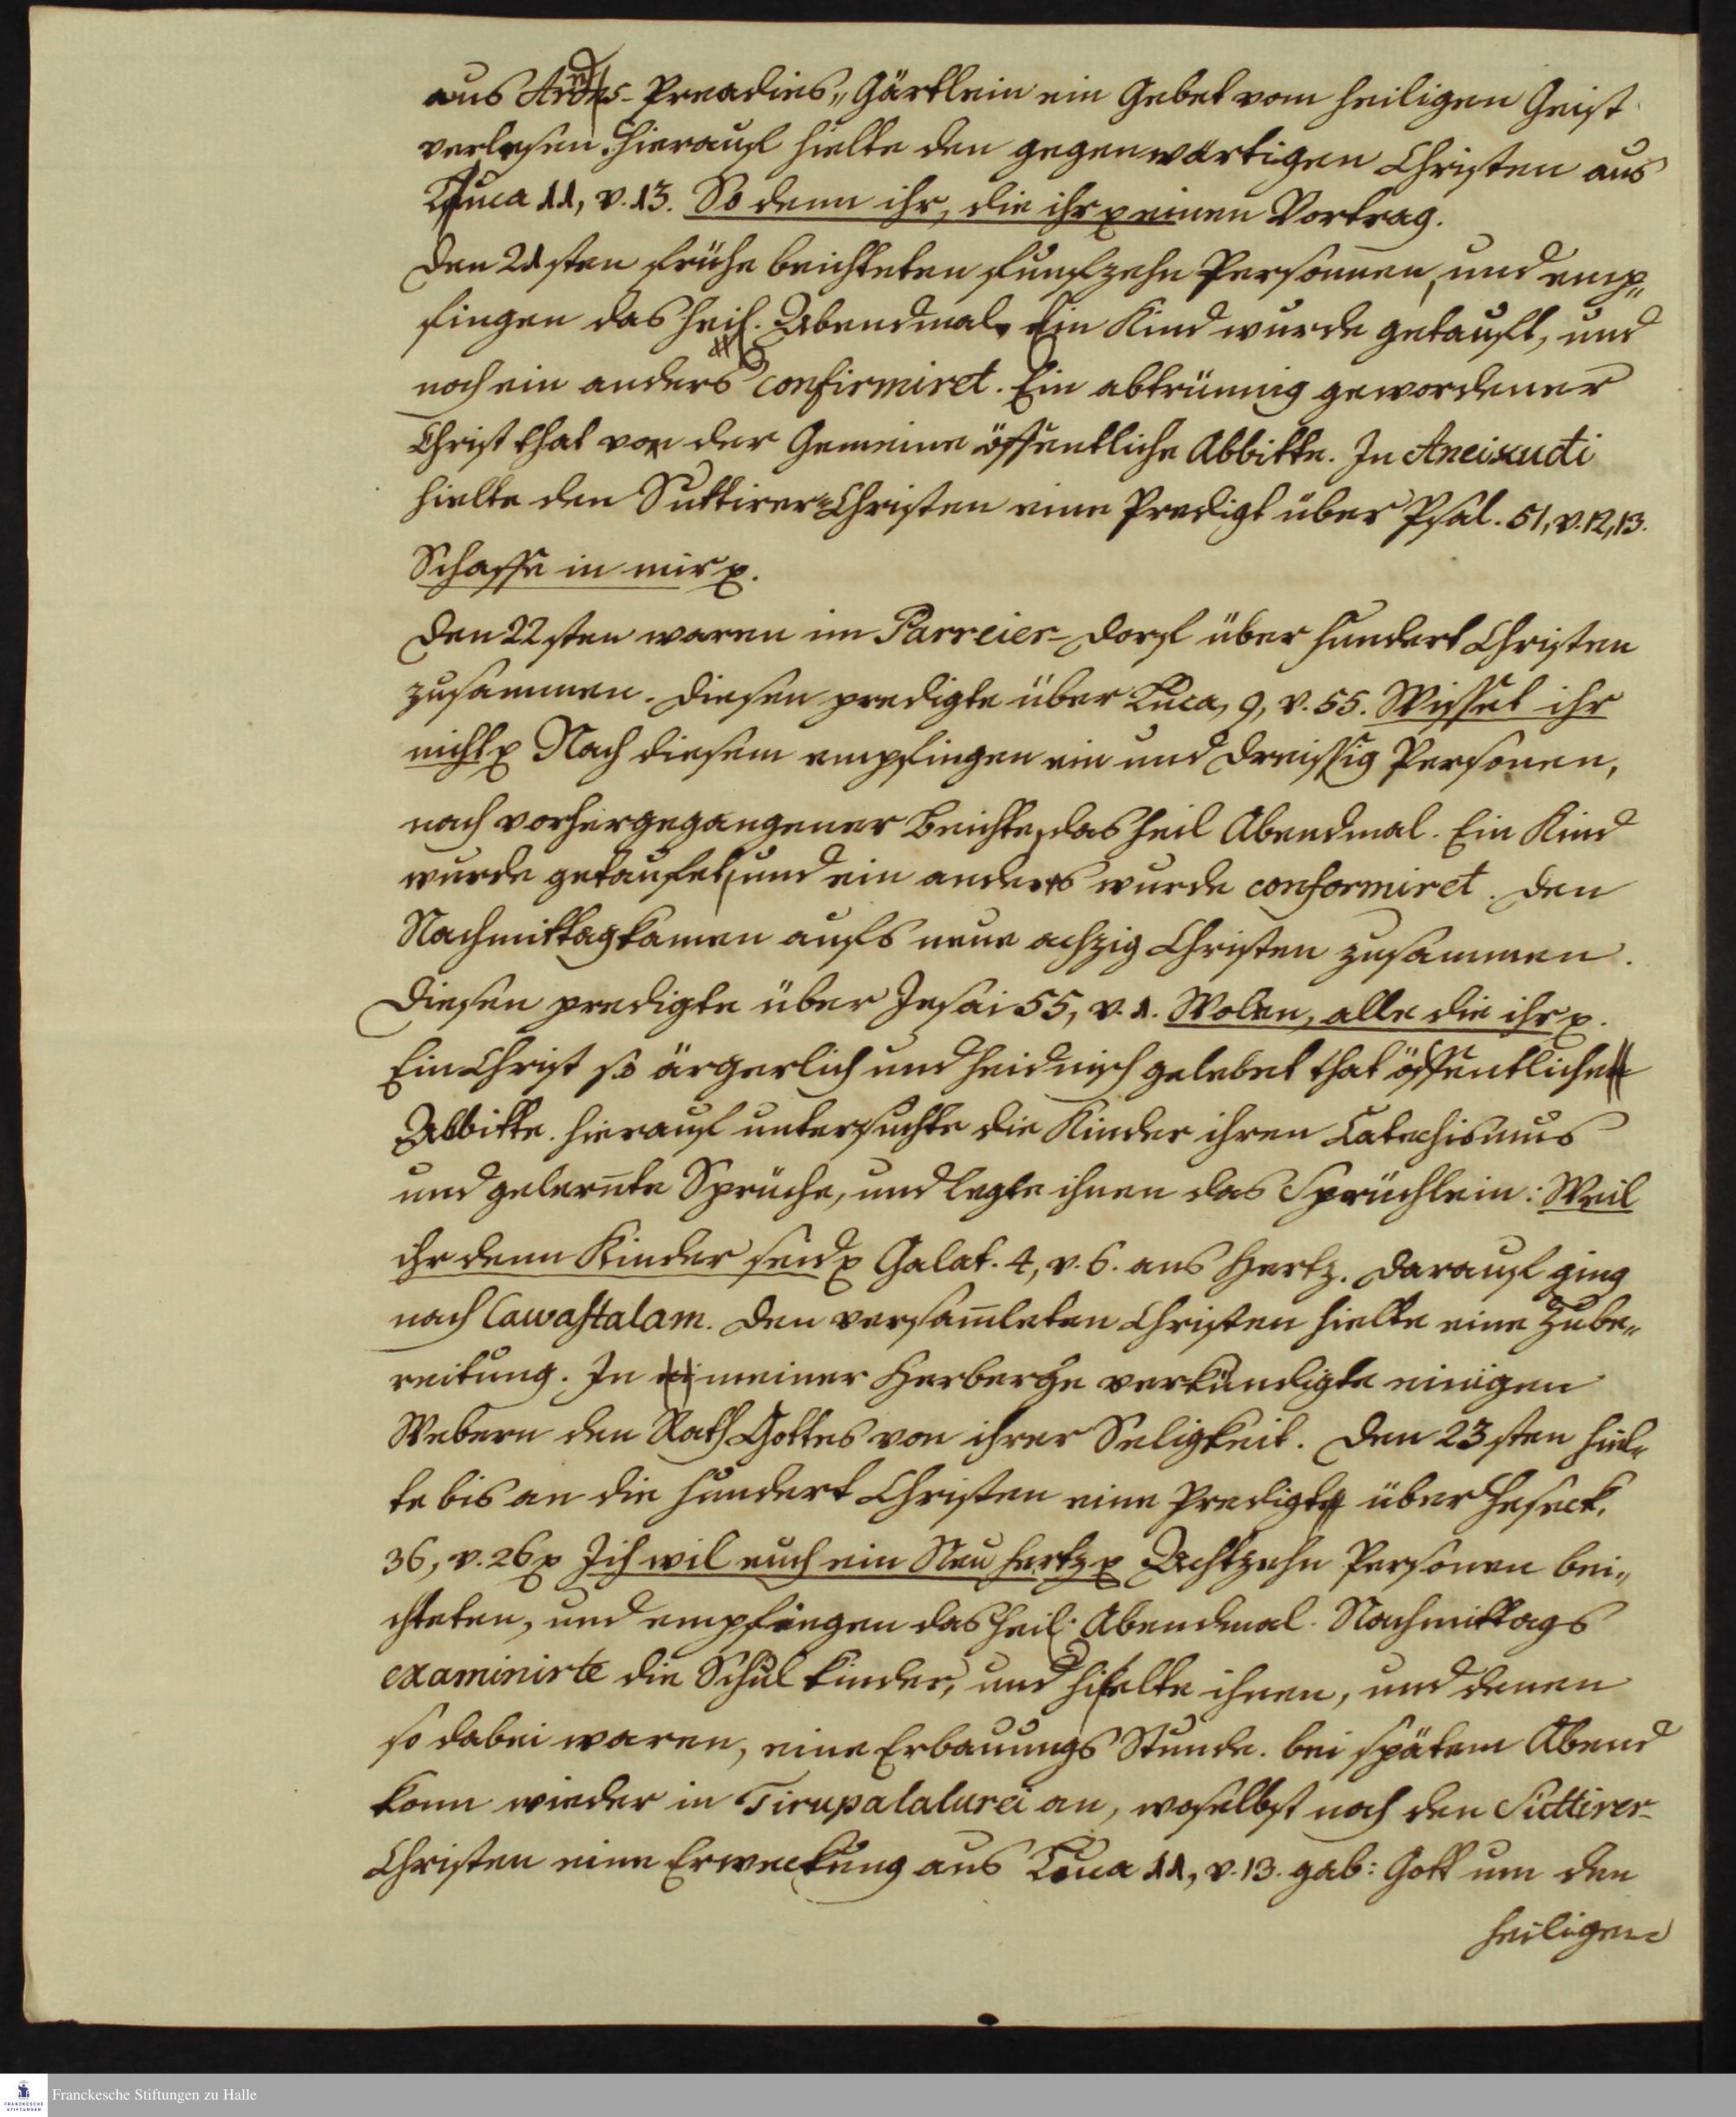 aus Arnds- Preadies„ Gärtlein ein Gebet vom heiligen Geist
verlesen. Hierauf hielte den gegenwärtigen Christen aus
Luca 11, v. 13. So denn ihr, die ihr p einen Vortrag.
Den 21sten frühe beichteten funfzehn Personnen, und emp„
fingen das heil. Abendmal. Ein Kind wurde getauft, und
noch ein anders confirmiret. Ein abtrünnig gewordener
Christ that vor der Gemeine öffentliche Abbitte. In Aneicudi
hielte den Suttirer-Christen eine Predigt über Psal. 51, v. 12, 13.
Schaffe in mir p.
Den 22sten waren im Parreier-Dorf über hundert Christen
zusammen. Diesen predigte über Luca, 9, v. 55. Wisset ihr
nicht p Nach diesem empfingen ein und dreissig Personen,
nach vorhergegangener Beichte, das heil Abendmal. Ein Kind
wurde getaufet, und ein anders wurde conformiret. Den
Nachmittag kamen aufs neue achzig Christen zusammen.
Diesen predigte über Jesai 55, v. 1. Wolan, alle die ihr p.
Ein Christ so ärgerlich und heidnisch gelebet that öffentliche
Abbitte. Hierauf untersuchte die Kinder ihren Catechismus
und gelernte Sprüche, und legte ihnen das Sprüchlein: Weil
ihr denn Kinder seid p Galat. 4, v. 6. ans Hertz. Darauf ging
nach Cawastalam. Den versam̄leten Christen hielte eine Zube„
reitung. In meiner Herberge verkündigte einigen
Webern den Rath Gottes von ihrer Seligkeit. Den 23sten hiel„
te bis an die hundert Christen eine Predigt über Heseck.
36, v. 26 p Ich wil euch ein Neu Hertz p Achtzehn Personen bei„
chteten, und empfingen das heil. Abendmal. Nachmittags
examinirte die Schul kinder, und hielte ihnen, und denen
so dabei waren, eine Erbauungs Stunde. Bei spätem Abend
kam wieder in Tirupalaturei an, woselbst noch den Suttirer-
Christen eine Erweckung aus Luca 11, v. 13. gab: Gott um den
heiligen
Franckesche Stiftungen zu Halle